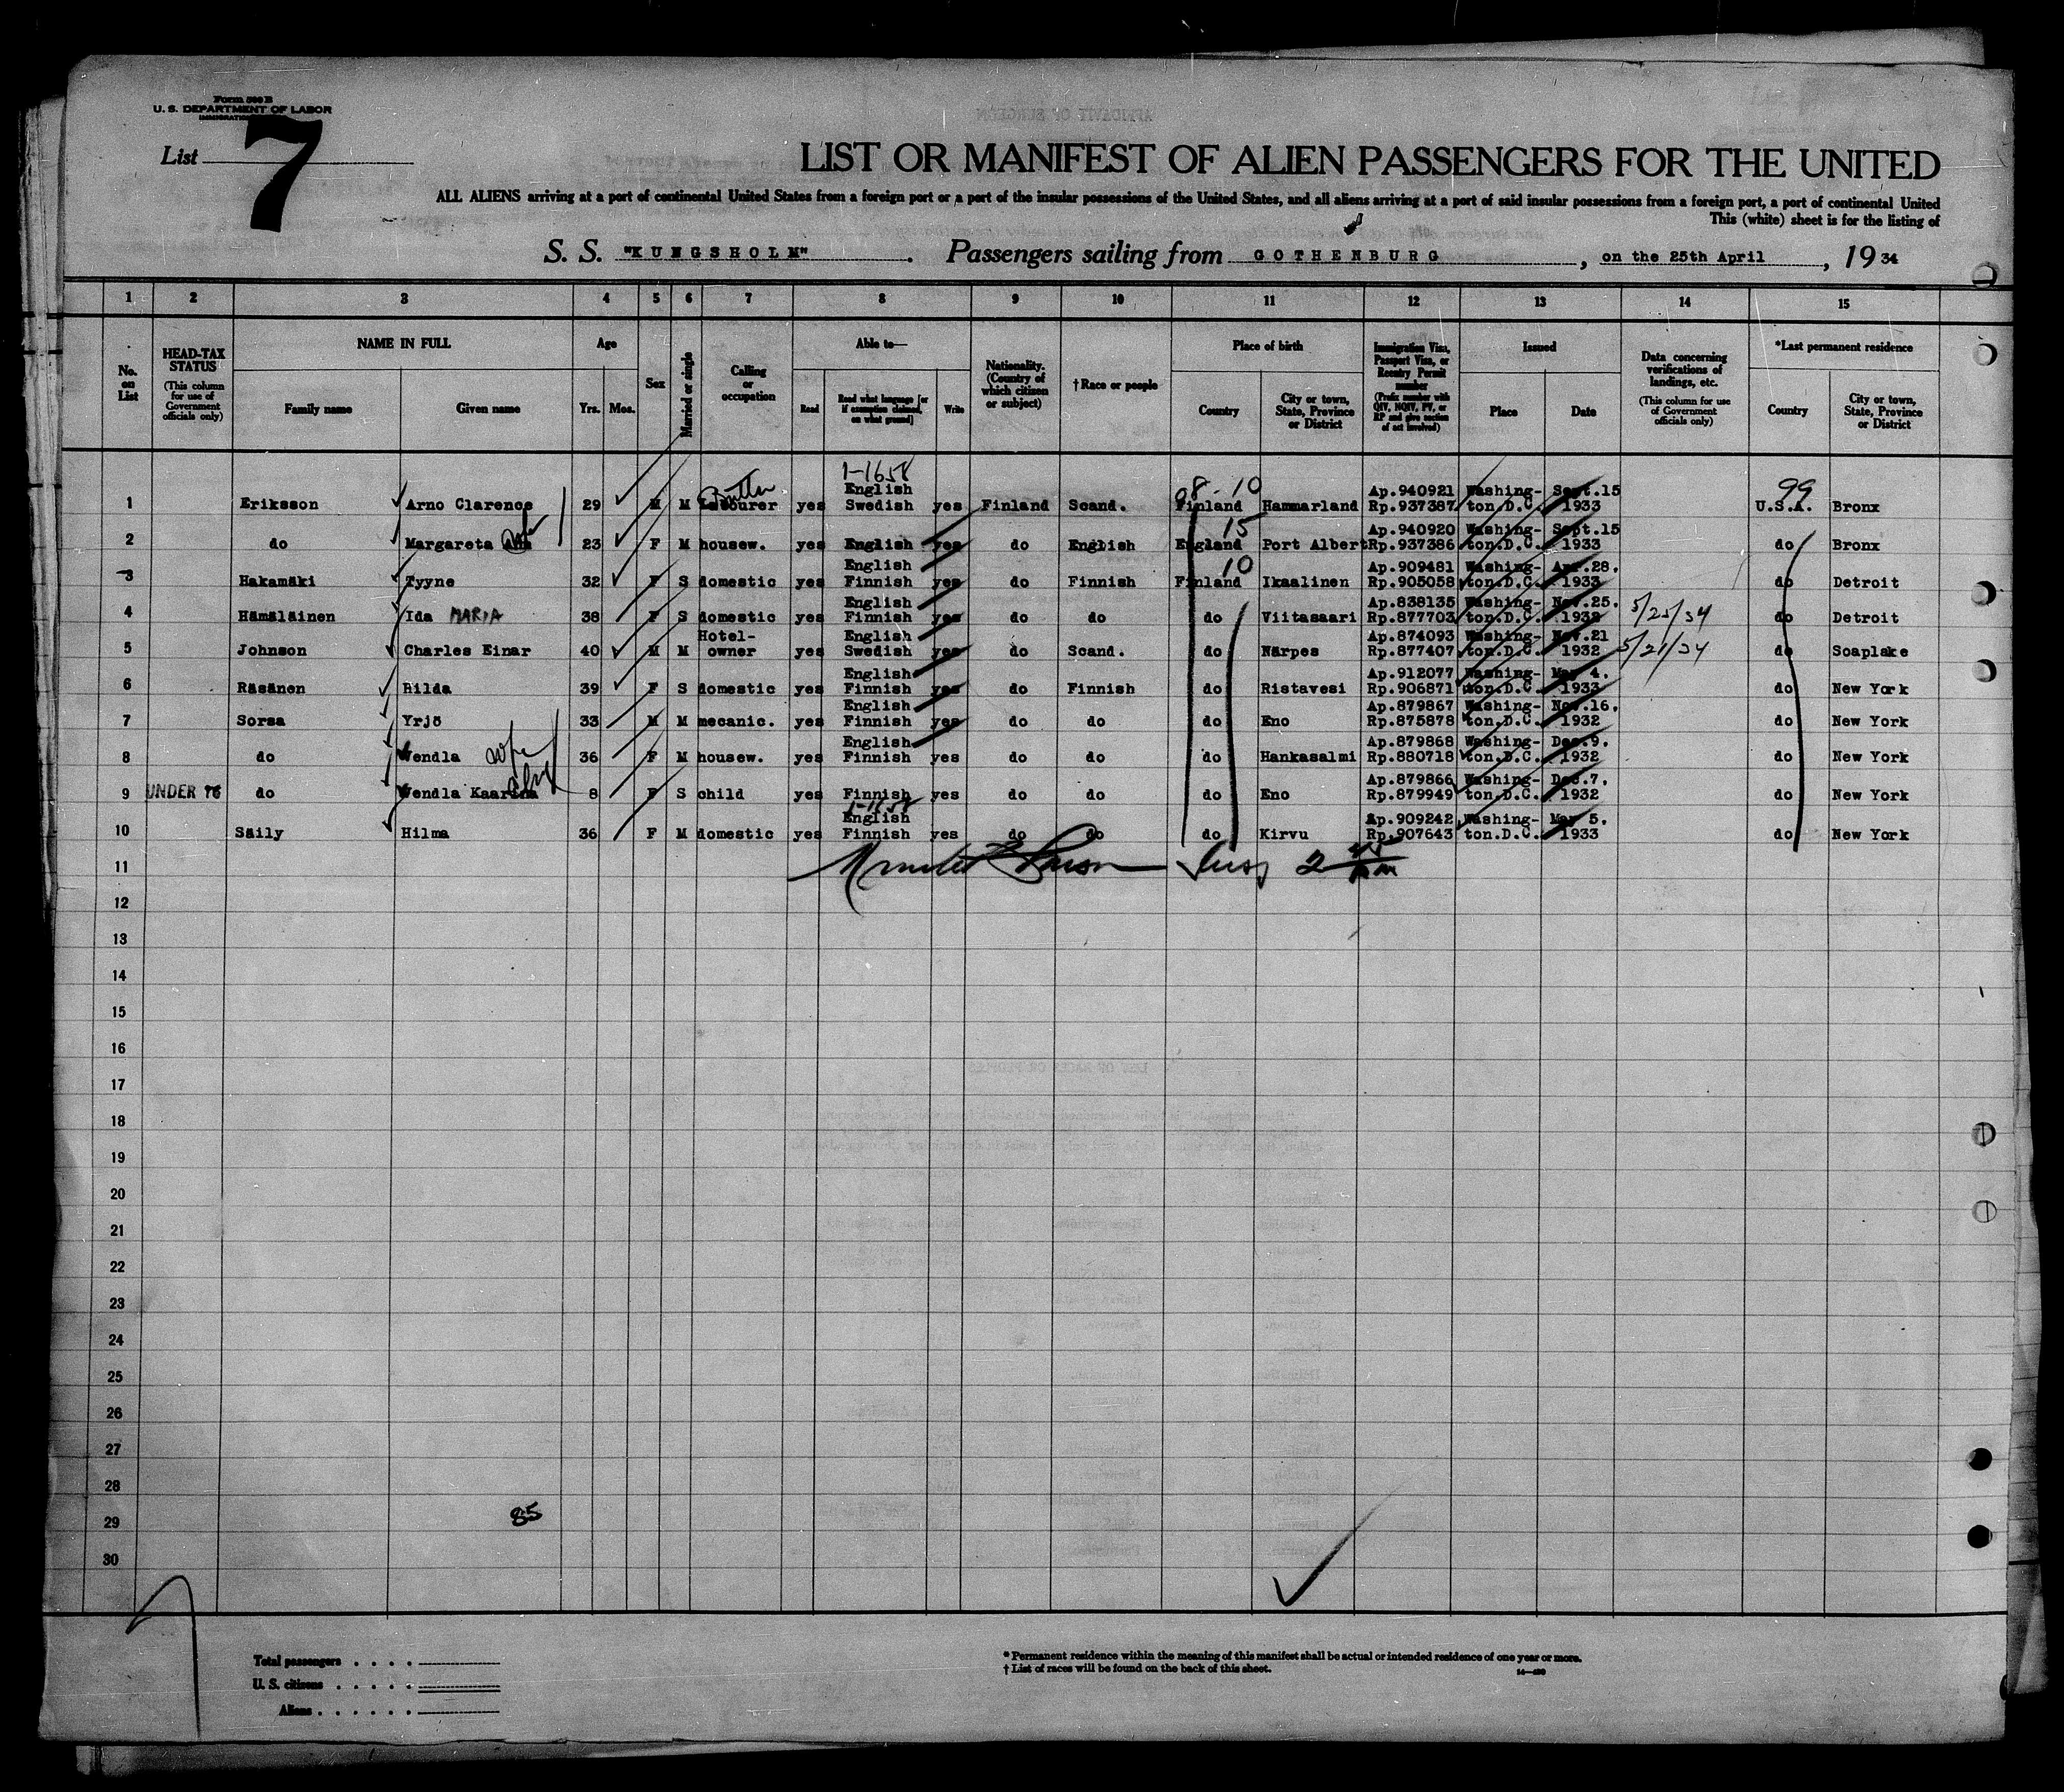 Form 500 B
U. S. DEPARTMENT OF LABOR
List 7
LIST OR MANIFEST OF ALIEN PASSENGERS FOR THE UNITED
ALL ALIENS arriving at a port of continental United States from a foreign port or a port of the insular possessions of the United States, and all aliens arriving at a port of said insular possessions from a foreign port, a port of continental United
This (white) sheet is for the listing of
S. S. "KUNGSHOLM" . Passengers sailing from GOTHENBURG , on the 25th April , 19 34
1 2 3 4 5 6 7 8 9 10 11 12 13 14 15
No. on List
HEAD-TAX STATUS (This column for use of Government officials only)
NAME IN FULL Family name Given name
Age Yrs. Mos.
Sex
Married or single
Calling or occupation
Able to— Read Read what language [or if exemption claimed, on what ground] Write
Nationality. (Country of which citizen or subject)
† Race or people
Place of birth Country City or town, State, Province or District
Immigration Visa, Passport Visa, or Reentry Permit number (Prefix number with QIV, NQIV, PV, or RP and give section of act involved)
Issued Place Date
Data concerning verifications of landings, etc. (This column for use of Government officials only)
*Last permanent residence Country City or town, State, Province or District
1-1658 08-10 99
1 Eriksson Arno Clarence 29 M M Labourer Butler yes English Swedish yes Finland Scand. Finland Hammarland Ap.940921 Rp.937387 Washington.D.C. Sept.15 1933 U.S.A. Bronx
2 do Margareta wife 23 F M housew. yes English yes do English 15 England Port Albert Ap.940920 Rp.937386 Washington.D.C. Sept.15 1933 do Bronx
3 Hakamäki Tyyne 32 F S domestic yes English Finnish yes do Finnish 10 Finland Ikaalinen Ap.909481 Rp.905058 Washington.D.C. Apr.28. 1933 do Detroit
4 Hämäläinen Ida MARIA 38 F S domestic yes English Finnish yes do do do Viitasaari Ap.838135 Rp.877703 Washington.D.C. Nov.25. 1932 5/25/34 do Detroit
5 Johnson Charles Einar 40 M M Hotel-owner yes English Swedish yes do Scand. do Närpes Ap.874093 Rp.877407 Washington.D.C. Nov.21 1932 5/21/34 do Soaplake
6 Räsänen Hilda 39 F S domestic yes English Finnish yes do Finnish do Ristavesi Ap.912077 Rp.906871 Washington.D.C. May 4. 1933 do New York
7 Sorsa Yrjö 33 M M mecanic. yes English Finnish yes do do do Eno Ap.879867 Rp.875878 Washington.D.C. Nov.16. 1932 do New York
8 do Wendla wife 36 F M housew. yes English Finnish yes do do do Hankasalmi Ap.879868 Rp.880718 Washington.D.C. Dec.9. 1932 do New York
9 UNDER 16 do Wendla Kaarina 8 F S child yes Finnish yes do do do Eno Ap.879866 Rp.879949 Washington.D.C. Dec.7. 1932 do New York
1-1658
10 Säily Hilma 36 F M domestic yes English Finnish yes do do do Kirvu Ap.909242 Rp.907643 Washington.D.C. May 5. 1933 do New York
11
12
13
14
15
16
17
18
19
20
21
22
23
24
25
26
27
28
85
29
30
Total passengers
U. S. citizens
Aliens
* Permanent residence within the meaning of this manifest shall be actual or intended residence of one year or more.
† List of races will be found on the back of this sheet.